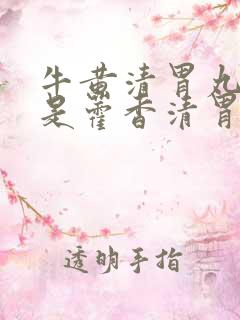 牛黄清胃丸
是藿香清胃
透明手指